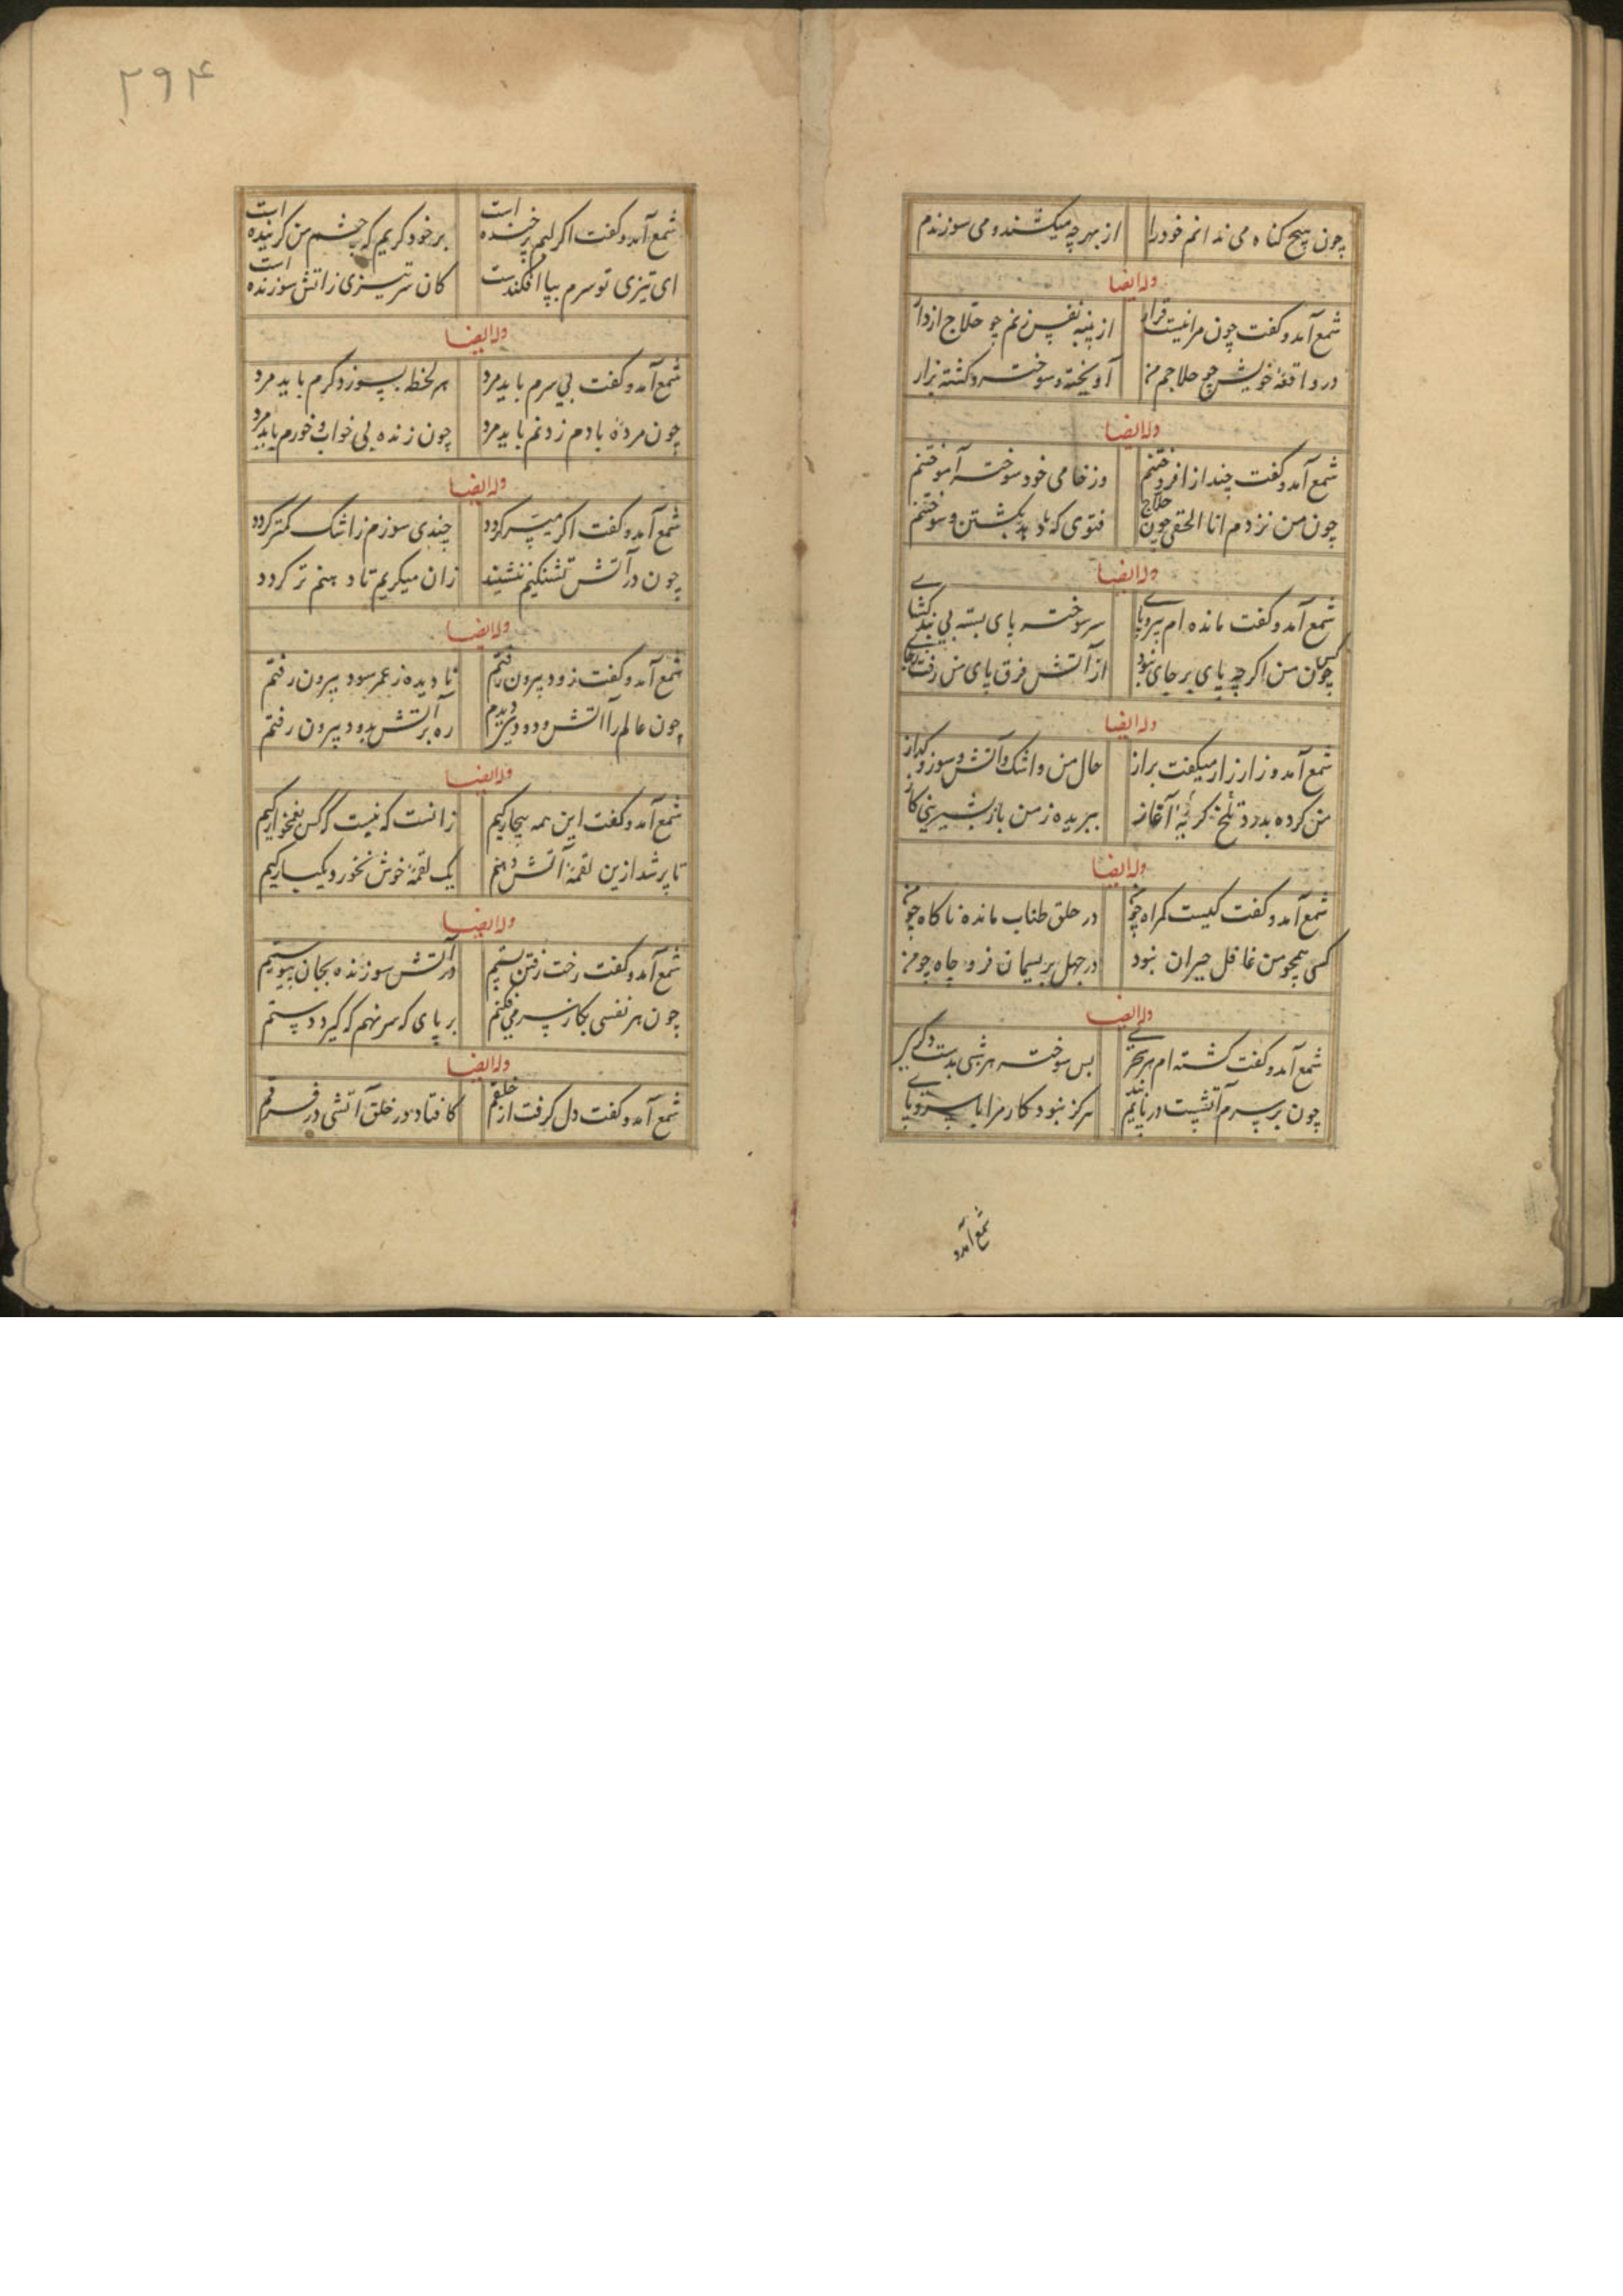 چون هیچ کناه می ندانم خودرا از بهر چه میکشند و می سوزندم
وله ایضا
شمع آمد و کفت چون مرا نیست قرار از پنبه نفس زنم چو حلاج از دار
در واقعهٔ خویش چو حلاجم من آویخته و سوخته و کشته بزار
وله ایضا
شمع آمد و کفت چند از افروختنم وز خامی خود سوختن آموختنم
چون من نزدم انا الحقی چون حلاج فتوی که دهد بکشتن و سوختنم
وله ایضا
شمع آمد و کفت مانده ام بی سر و پای سر سوخته پای بسته بی بند کشای
چون من اکرچه پای بر جای نبود از آتش فرق پای من رفت ز جای
وله ایضا
شمع آمد و زار زار میکفت براز حال من و اشک و آتش و سوز و کداز
من کرده بدرد تلخ کریه آغاز ببریده ز من باز بشیرینی کاز
وله ایضا
شمع آمد و کفت کیست کمراه چو من در حلق طناب مانده ناکاه چو من
کس همچو من غافل حیران نبود در جهل بریسمان فرو چاه چو من
وله ایضا
شمع آمد و کفت کشته ام هر سحری بس سوخته هر شبی بدست دکری
چون بر سرم آتشیست در پایم بند هرکز نبود کار مرا پا و سری
شمع آمد و
۲۹۴
شمع آمد و کفت اکر لبم پر خنده است بر خود کریم که چشم من کرینده است
ای تیزی تو سرم بپا افکندست کان سر تیزی ز آتش سوزنده است
وله ایضا
شمع آمد و کفت بی سرم باید مرد هر لحظه بسوز دکرم باید مرد
چون مردهٔ بادم ز دنم باید مرد چون زنده بی خواب و خورم باید مرد
وله ایضا
شمع آمد و کفت اکر میسر کردد چندی سوزم ز اشک کمتر کردد
چون در آتش تشنکیم ننشیند زان میکریم تا دهنم تر کردد
وله ایضا
شمع آمد و کفت زود بیرون رفتم نادیده ز عمر سود بیرون رفتم
چون عالم را آتش و دودی دیدم ره بر آتش بدود بیرون رفتم
وله ایضا
شمع آمد و کفت این همه بیچارکیم زانست که نیست کس بغمخوارکیم
تا پر شد ازین لقمهٔ آتش دهنم یک لقمهٔ خوش نخورد یکبارکیم
وله ایضا
شمع آمد و کفت رخت رفتن بستیم در آتش سوزنده بجان پیوستیم
چون هر نفسی بکاز سر می فکنم بر پای که سر نهم که کیرد دستم
وله ایضا
شمع آمد و کفت دل کرفت از خلقم کافتاد در خلق آتشی در فرقم